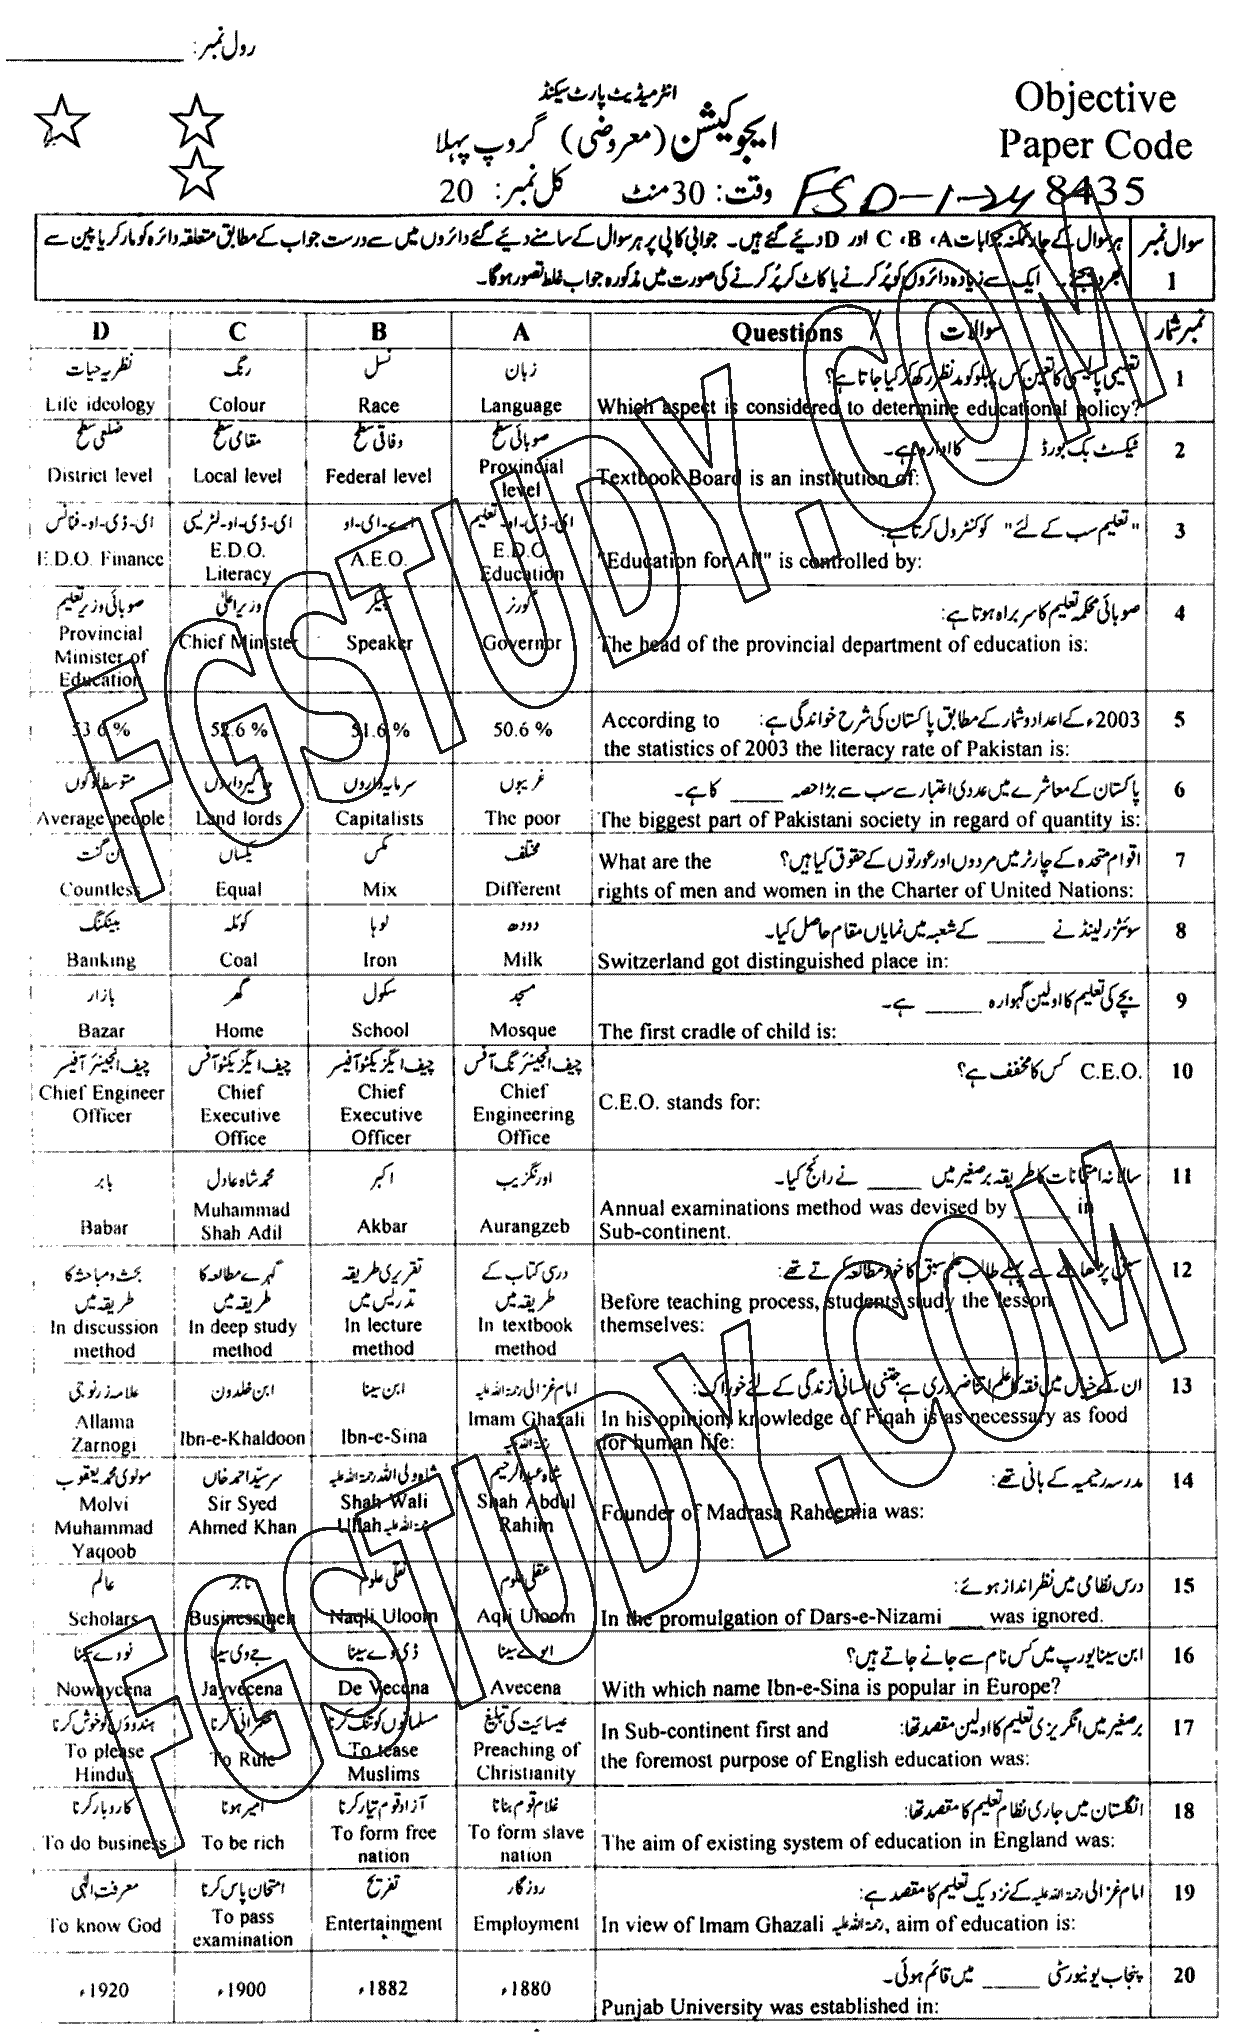 رول نمبر: ____________
انٹرمیڈیٹ پارٹ سیکنڈ
ایجوکیشن (معروضی) گروپ پہلا
وقت: 30 منٹ کل نمبر: 20
Objective
Paper Code
8435
FSD-1-24
سوال نمبر 1
ہر سوال کے چار ممکنہ جوابات A، B، C اور D دیئے گئے ہیں۔ جوابی کاپی پر ہر سوال کے سامنے دیئے گئے دائروں میں سے درست جواب کے مطابق متعلقہ دائرہ کو مارکر یا پین سے
بھر دیجئے۔ ایک سے زیادہ دائروں کو پُر کرنے یا کاٹ کر پُر کرنے کی صورت میں مذکورہ جواب غلط تصور ہوگا۔
نمبر شمار سوالات Questions A B C D
1 تعلیمی پالیسی کا تعین کس پہلو کو مدنظر رکھ کر کیا جاتا ہے؟ زبان نسل رنگ نظریہ حیات
Which aspect is considered to determine educational policy? Language Race Colour Life ideology
2 ٹیکسٹ بک بورڈ ____ کا ادارہ ہے۔ صوبائی سطح وفاقی سطح مقامی سطح ضلعی سطح
Textbook Board is an institution of: Provincial level Federal level Local level District level
3 "تعلیم سب کے لئے" کو کنٹرول کرتا ہے: ای-ڈی-او-تعلیم اے-ای-او ای-ڈی-او-لٹریسی ای-ڈی-او-فنانس
"Education for All" is controlled by: E.D.O. Education A.E.O. E.D.O. Literacy E.D.O. Finance
4 صوبائی محکمہ تعلیم کا سربراہ ہوتا ہے: گورنر سپیکر وزیر اعلیٰ صوبائی وزیر تعلیم
The head of the provincial department of education is: Governor Speaker Chief Minister Provincial Minister of Education
5 2003ء کے اعداد و شمار کے مطابق پاکستان کی شرح خواندگی ہے: According to
the statistics of 2003 the literacy rate of Pakistan is: 50.6 % 51.6 % 52.6 % 53.6 %
6 پاکستان کے معاشرے میں عددی اعتبار سے سب سے بڑا حصہ ____ کا ہے۔ غریبوں سرمایہ داروں جاگیرداروں متوسط لوگوں
The biggest part of Pakistani society in regard of quantity is: The poor Capitalists Land lords Average people
7 اقوام متحدہ کے چارٹر میں مردوں اور عورتوں کے حقوق کیا ہیں؟ What are the مختلف مکس یکساں ان گنت
rights of men and women in the Charter of United Nations: Different Mix Equal Countless
8 سوئٹزرلینڈ نے ____ کے شعبہ میں نمایاں مقام حاصل کیا۔ دودھ لوہا کوئلہ بینکنگ
Switzerland got distinguished place in: Milk Iron Coal Banking
9 بچے کی تعلیم کا اولین گہوارہ ____ ہے۔ مسجد سکول گھر بازار
The first cradle of child is: Mosque School Home Bazar
10 C.E.O. کس کا مخفف ہے؟ چیف انجینئرنگ آفس چیف ایگزیکٹو آفیسر چیف ایگزیکٹو آفس چیف انجینئر آفیسر
C.E.O. stands for: Chief Engineering Office Chief Executive Officer Chief Executive Office Chief Engineer Officer
11 سالانہ امتحانات کا طریقہ برصغیر میں ____ نے رائج کیا۔ اورنگزیب اکبر محمد شاہ عادل بابر
Annual examinations method was devised by ____ in
Sub-continent. Aurangzeb Akbar Muhammad Shah Adil Babar
12 سبق پڑھانے سے پہلے طالب علم سبق کا خود مطالعہ کرتے تھے: درسی کتاب کے طریقہ میں تقریری طریقہ تدریس میں گہرے مطالعہ کا طریقہ میں بحث و مباحثہ کا طریقہ میں
Before teaching process, students study the lesson
themselves: In textbook method In lecture method In deep study method In discussion method
13 ان کے خیال میں فقہ کا علم اتنا ضروری ہے جتنی انسانی زندگی کے لئے خوراک: امام غزالی رحمۃ اللہ علیہ ابن سینا ابن خلدون علامہ زرنوجی
In his opinion, knowledge of Fiqah is as necessary as food
for human life: Imam Ghazali رحمۃ اللہ علیہ Ibn-e-Sina Ibn-e-Khaldoon Allama Zarnogi
14 مدرسہ رحیمیہ کے بانی تھے: شاہ عبدالرحیم شاہ ولی اللہ رحمۃ اللہ علیہ سر سیّد احمد خاں مولوی محمد یعقوب
Founder of Madrasa Raheemia was: Shah Abdul Rahim Shah Wali Ullah رحمۃ اللہ علیہ Sir Syed Ahmed Khan Molvi Muhammad Yaqoob
15 درس نظامی میں نظر انداز ہوئے: عقلی علوم نقلی علوم تاجر عالم
In the promulgation of Dars-e-Nizami ___ was ignored. Aqli Uloom Naqli Uloom Businessmen Scholars
16 ابن سینا یورپ میں کس نام سے جانے جاتے ہیں؟ ایوے سینا ڈی وے سینا جے وی سینا نووے سینا
With which name Ibn-e-Sina is popular in Europe? Avecena De Vecena Jayvecena Nowaycena
17 برصغیر میں انگریزی تعلیم کا اولین مقصد تھا: In Sub-continent first and عیسائیت کی تبلیغ مسلمانوں کو تنگ کرنا حکمرانی کرنا ہندوؤں کو خوش کرنا
the foremost purpose of English education was: Preaching of Christianity To tease Muslims To Rule To please Hindus
18 انگلستان میں جاری نظام تعلیم کا مقصد تھا: غلام قوم بنانا آزاد قوم تیار کرنا امیر ہونا کاروبار کرنا
The aim of existing system of education in England was: To form slave nation To form free nation To be rich To do business
19 امام غزالی رحمۃ اللہ علیہ کے نزدیک تعلیم کا مقصد ہے: روزگار تفریح امتحان پاس کرنا معرفت الٰہی
In view of Imam Ghazali رحمۃ اللہ علیہ, aim of education is: Employment Entertainment To pass examination To know God
20 پنجاب یونیورسٹی ____ میں قائم ہوئی۔
Punjab University was established in: 1880ء 1882ء 1900ء 1920ء
FGSTUDY.COM
FGSTUDY.COM